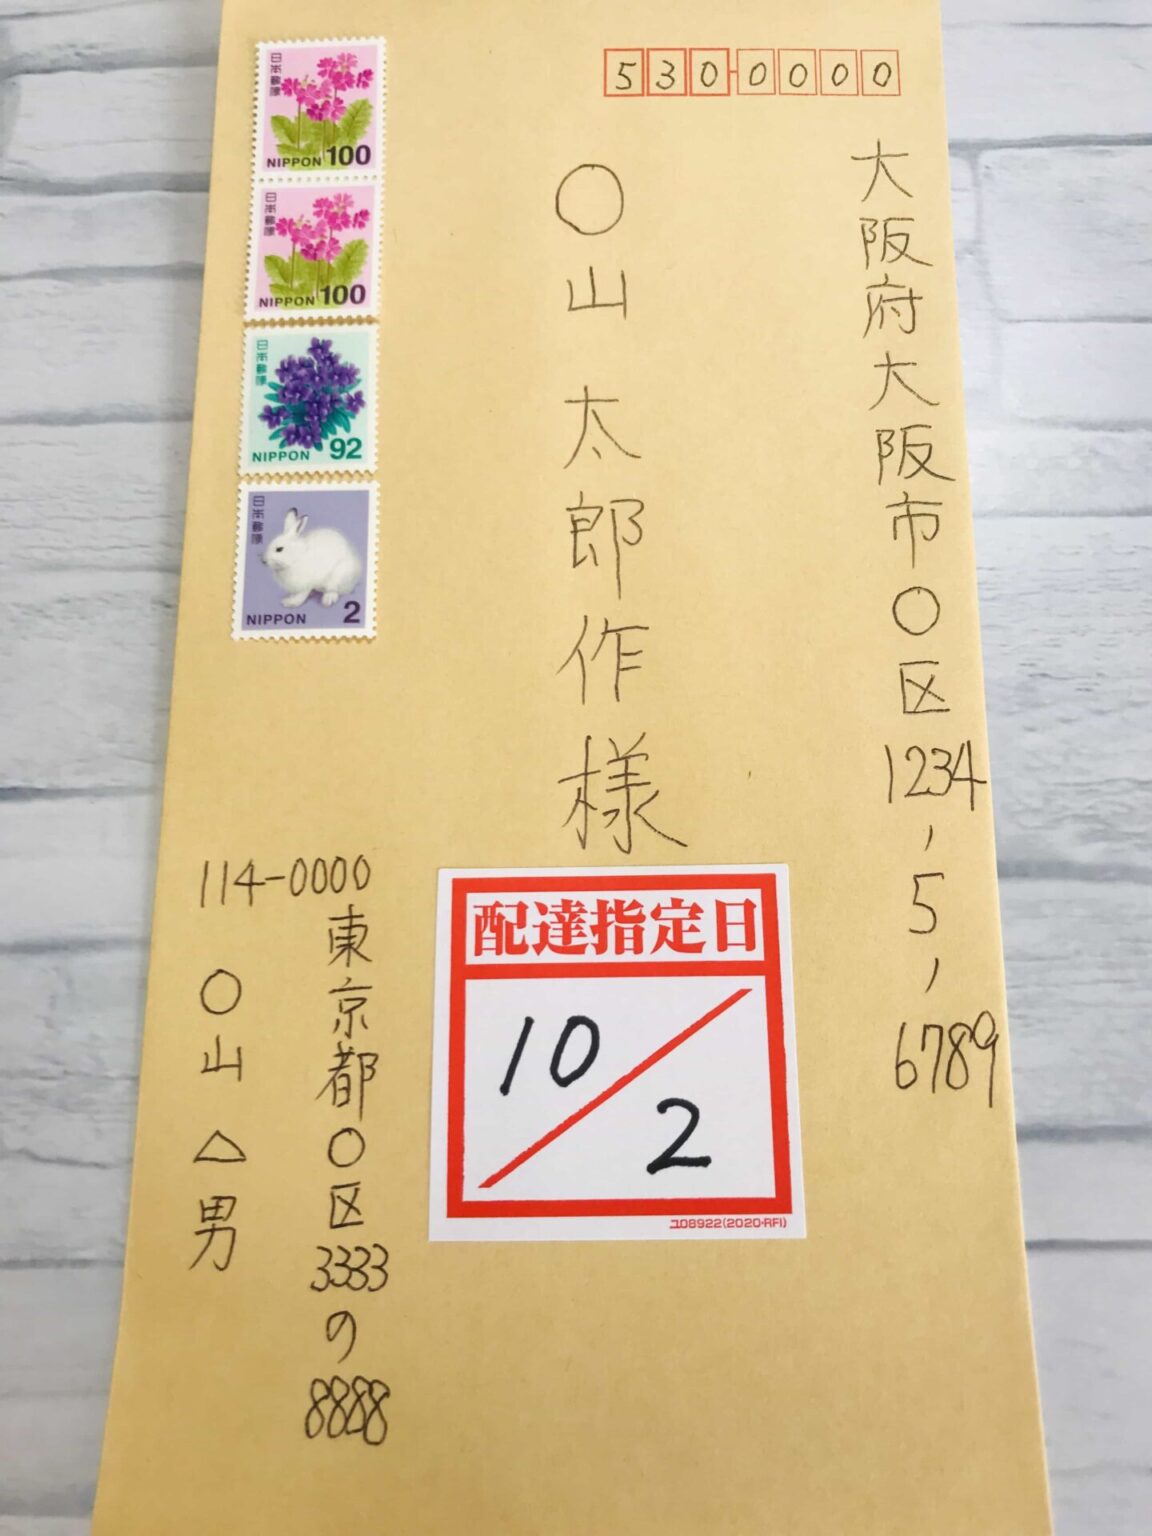 530-0000
大阪府大阪市〇区1234,5,6789
〇山太郎作様
日本郵便
NIPPON 100
日本郵便
NIPPON 100
日本郵便
NIPPON 92
日本郵便
NIPPON 2
配達指定日
10/2
ユ08922(2020・RFI)
114-0000
東京都〇区3333の8888
〇山△男